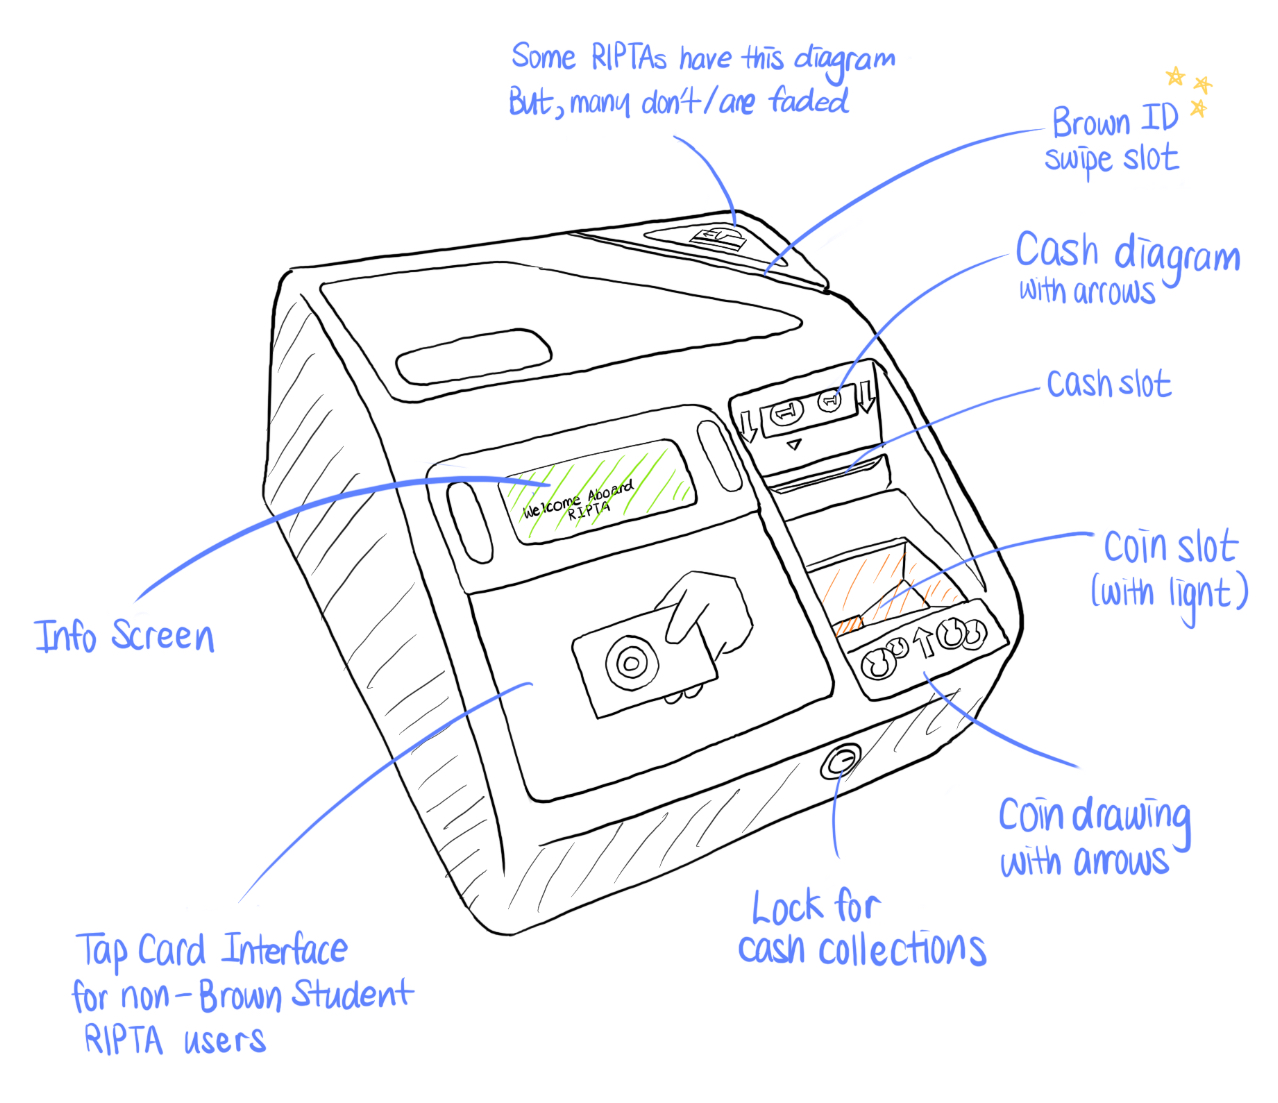 Some RIPTAs have this diagram
But, many don't/are faded
Brown ID
swipe slot
Cash diagram
with arrows
Cash slot
Welcome Aboard
RIPTA
Coin slot
(with light)
Info Screen
Coin drawing
with arrows
Lock for
cash collections
Tap Card Interface
for non-Brown Student
RIPTA users